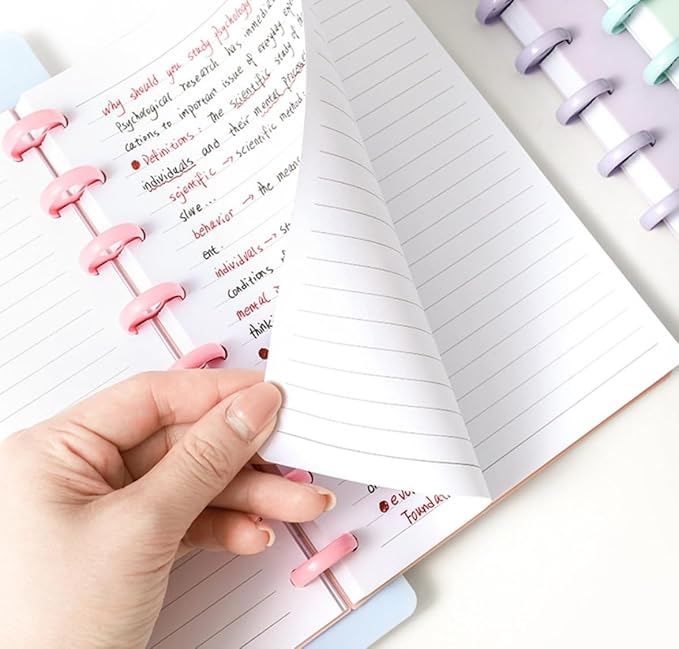 why should you study psychology
Psychological research has immediate
cations to important issue of everyday
● Definitions: The scientific study of the
individuals and their mental processes
scientific → scientific method
slove...
behavior → the means
ent.
individuals → 
conditions
mental
think
evo
Foundat